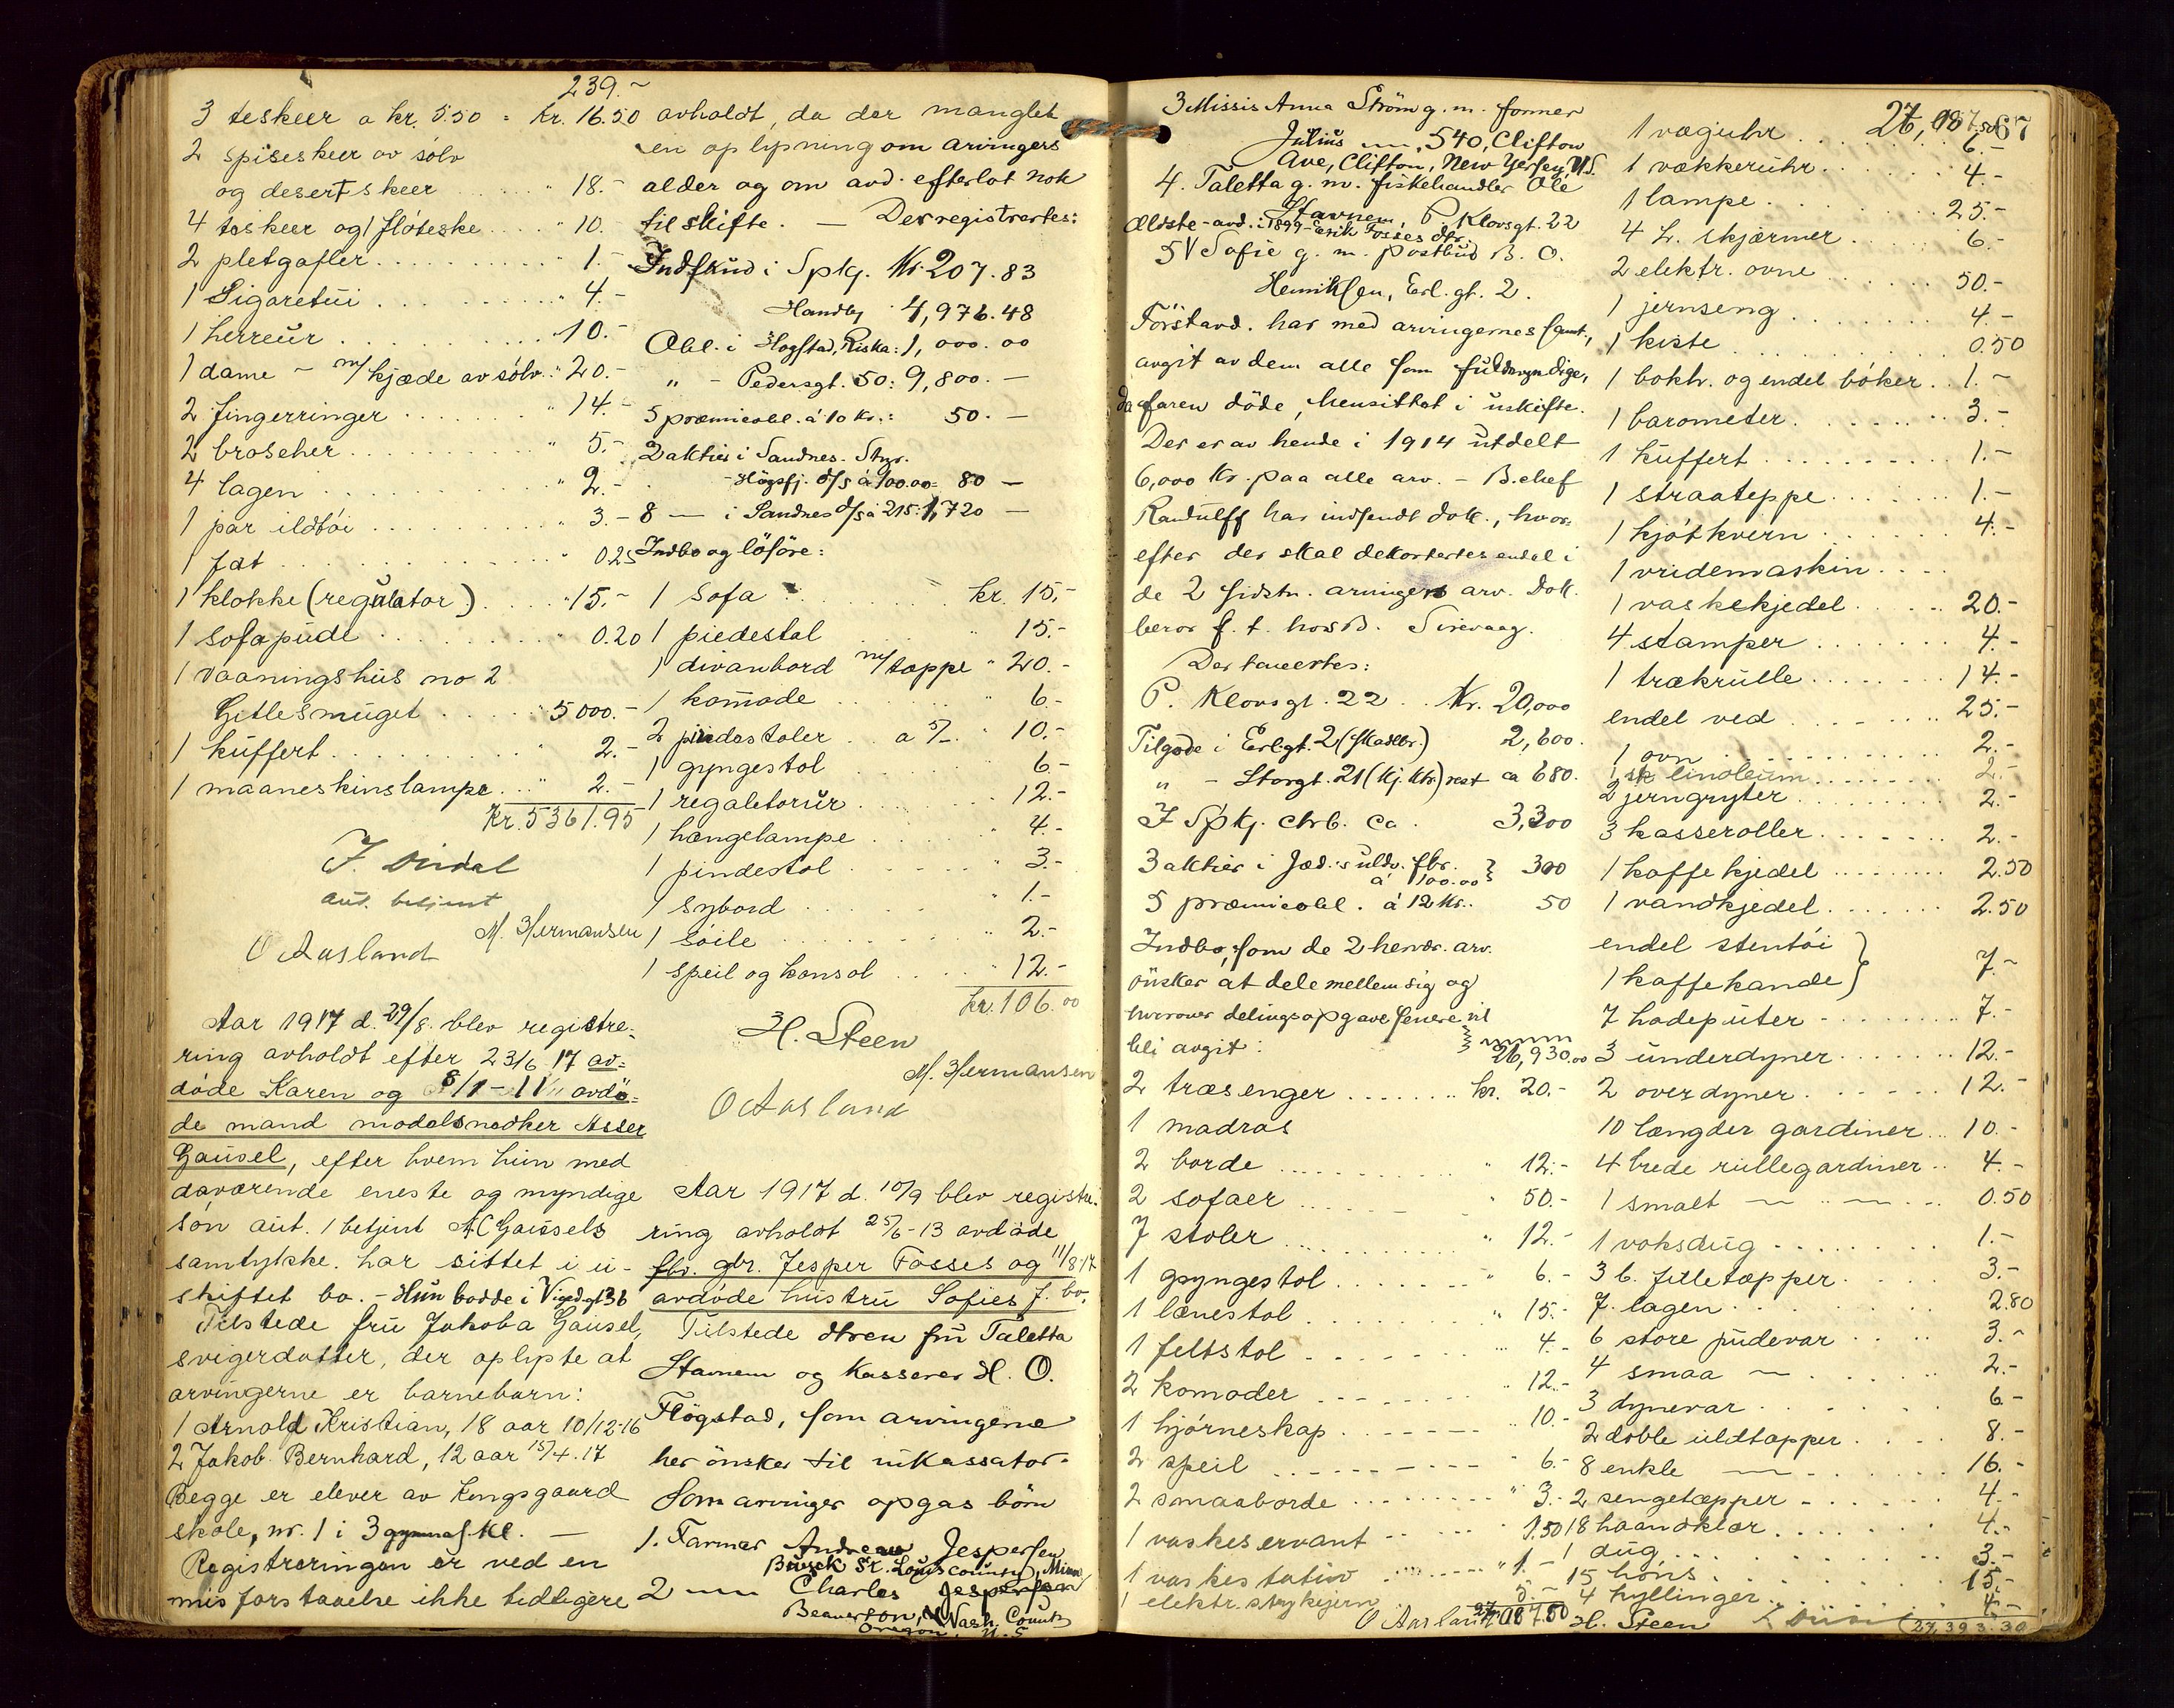 239.-
3 teskeer a kr. 5.50 = Kr. 16.50
2 spiseskeer av sølv
og desertskeer . . . . . . " 18.-
4 teskeer og 1 fløteske . . . . " 10.-
2 pletgafler . . . . . . . . . " 1.-
1 Sigaretui . . . . . . . . . " 4.-
1 herreur . . . . . . . . . . " 10.-
1 dame - m/ kjæde av sølv . . " 20.-
2 fingerringer . . . . . . . " 14.-
2 broscher . . . . . . . . . " 5.-
4 lagen . . . . . . . . . . " 2.-
1 par ildtöi . . . . . . . . " 3.-
1 fat . . . . . . . . . . . " 0.25
1 klokke (regulator) . . . . " 15.-
1 sofapude . . . . . . . . . " 0.20
1 vaaningshus no 2
Gitlesmuget . . . . " 5000.-
1 kuffert . . . . . . . . . " 2.-
1 maaneskinslampe . . . " 2.-
Kr. 5361.95
aut. betjent
M. Hermansen
O Aasland
Aar 1917 d. 29/8. blev registre-
ring avholdt efter 23/6 17 av-
døde Karen og 8/1 - 11 avdø-
de mand modelsnedker Asser
Gausel, efter hvem hun med
daværende eneste og myndige
søn aut. 1 betjent A C Gausels
samtykke har sittet i u-
skiftet bo. - Hun bodde i Vigedgt 36
Tilstede fru Jakoba Gausel,
svigerdatter, der oplyste at
arvingerne er barnebarn:
1 Arnold Kristian, 18 aar 10/12-16
2 Jakob Bernhard, 12 aar 15/4.17
Begge er elever av Kongsgaard
skole, nr. 1 i 3 gymnaskl. -
Registreringen er ved en
misforstaaelse ikke tidligere
avholdt, da der manglet
en oplysning om arvingers
alder og om avd. efterlot nok
til skifte. - Der registrertes:
Indskud i Spkg. Kr. 207.83
Handbg 4,976.48
Obl. i Hogstad, Riska: 1,000.00
" - Pedersgt. 50: 9,800.-
5 præmieobl. á 10 kr.: 50.-
2 aktier i Sandnes. Styr.
- Högsfj. d/s á 100.00= 80 -
8 — i Sandnes d/s á 215: 1,720 -
Indbo og løsöre:
1 Sofa . . . . . . . . kr. 15.-
1 piedestal . . . . . " 15.-
1 divanbord m/teppe " 20.-
1 komode . . . . . . " 6.-
2 pindestoler . . a 5/- . " 10.-
1 gyngestol . . . . . . " 6.-
1 regulatorur . . . . . " 12.-
1 hængelampe . . . . . " 4.-
1 pindestol . . . . . . " 3.-
1 sybord . . . . . . . " 1.-
1 söile . . . . . . . . " 2.-
1 speil og konsol . . . . " 12.-
kr. 106.00
H. Steen
M. Hermansen
O Aasland
Aar 1917 d. 10/9 blev registre-
ring avholdt 25/6-13 avdøde
fbr. gbr. Jesper Fosses og 11/8 17
avdøde hustru Sofies f. bo.
Tilstede dtren fru Taletta
Stavnem og Kasserer H. O.
Flögstad, som arvingene
her önsker til inkassator.
Som arvinger opgas börn
1. Farmer Andreas Jespersen
Buyck St. Louis county, Minn
2 —" Charles Jespersen
Beaverton, Wash. County
Oregon. U.S
3 Missis Anna Ström g. m. former
Julius —", 540, Clifton
Ave, Clifton, New Yersey, U.S.
4. Taletta g. m. fiskehandler Ole
Stavnem, P. Klovsgt. 22
Ældste-avd. i 1899 - Erik Fosses dtr.
5 Sofie g. m. postbud B. O.
Henriksen, Erl. gt. 2.
Förstavd. har med arvingernes samt.,
avgit av dem alle som fuldmyndige,
da faren döde, hensittet i uskifte.
Der er av hende i 1914 utdelt
6,000 Kr. paa alle arv. - B.chef
Randulff har indsendt dok., hvor-
efter der skal dekorteres endel i
de 2 sidstn. arvingers arv. Dok.
beror f. t. hos B. Sirevaag.
Der taxertes:
P. Klovsgt. 22 . . Kr. 20,000
Tilgode i Erl.gt. 2 (Skadbr.) 2,600.
" - Storgt. 21 (Kj. Ktr.) rest ca 680.
I Spkg. ctrb. ca . 3,300
3 aktier i Jæd.s uldv. fbr.
á 100.00 } 300
5 præmieobl. á 12 Kr.. 50
Indbo, som de 2 herv. arv.
önsker at dele mellem sig og
hvorover delingsopgave senere vil
bli avgit:
26,930.00
2 træsenger . . . . . . . kr. 20.-
1 madras
2 borde . . . . . . . . . " 12.-
2 sofaer . . . . . . . . . " 50.-
7 stoler . . . . . . . . . " 12.-
1 gyngestol . . . . . . . " 6.-
1 lænestol . . . . . . . . " 15.-
1 feltstol . . . . . . . . " 4.-
2 komoder . . . . . . . . " 12.-
1 hjørneskap . . . . . . . " 10.-
2 speil . . . . . . . . . " 6.-
2 smaaborde . . . . . . . " 3.-
1 vaskeservant . . . . . " 1.50
1 vaskestativ . . . . . . " 1 -
1 elektr. strykejern . . . 5 -
27,087.50
O Aasland
27,087.50 67
1 væguhr . . . . . . . . 6.-
1 vækkeruhr . . . . . . . 4.-
1 lampe . . . . . . . . . 25.-
4 L. skjærmer . . . . . . 6.-
2 elektr. ovne . . . . . . 50.-
1 jernseng . . . . . . . . 4.-
1 kiste . . . . . . . . . 0.50
1 bokh. og endel böker . . 1.-
1 barometer . . . . . . . 3.-
1 kuffert . . . . . . . . 1.-
1 straateppe . . . . . . . 1.-
1 kjøtkvern . . . . . . . 4.-
1 vridemaskin . . . .
1 vaskekjedel . . . . . . 20.-
4 stamper . . . . . . . . 4.-
1 trækrulle . . . . . . . 14.-
endel ved . . . . . . . . 25.-
1 ovn . . . . . . . . . . 2.-
1 stk linoleum . . . . . . 2.-
2 jerngryter . . . . . . . 2.-
3 kasseroller . . . . . . 2.-
1 kaffekjedel . . . . . . 2.50
1 vandkjedel . . . . . . . 2.50
endel stentöi
1 kaffekande } 7.-
7 hodeputer . . . . . . . 7.-
3 underdyner . . . . . . . 12.-
2 overdyner . . . . . . . 12.-
10 længder gardiner . . . 10.-
4 brede rullegardiner . . 4.-
1 smalt — " — . . . 0.50
1 voksdug . . . . . . . . 1.-
3 b. filletæpper . . . . . 3.-
7 lagen . . . . . . . . . 2.80
6 store pudevar . . . . . 3.-
4 smaa — . . . . . . 2.-
3 dynevar . . . . . . . . 6 -
2 doble uldtæpper . . . . 8.-
8 enkle — . . . . . . 16.-
2 sengetæpper . . . . . . 4.-
18 haandklær . . . . . . . 4.-
1 dug . . . . . . . . . . 3.-
15 høns . . . . . . . . . 15.-
4 kyllinger . . . . . . . 4.-
H. Steen
27,393.30